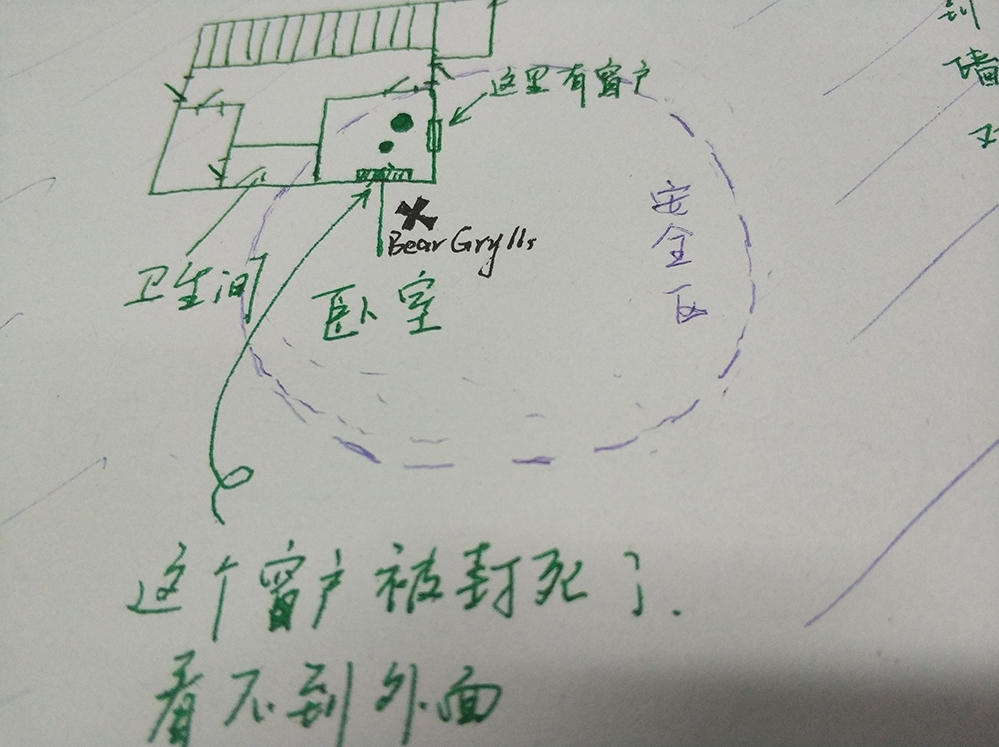 到
墙
这里有窗户
安全区
Bear Grylls
卫生间
卧室
这个窗户被封死了.
看不到外面